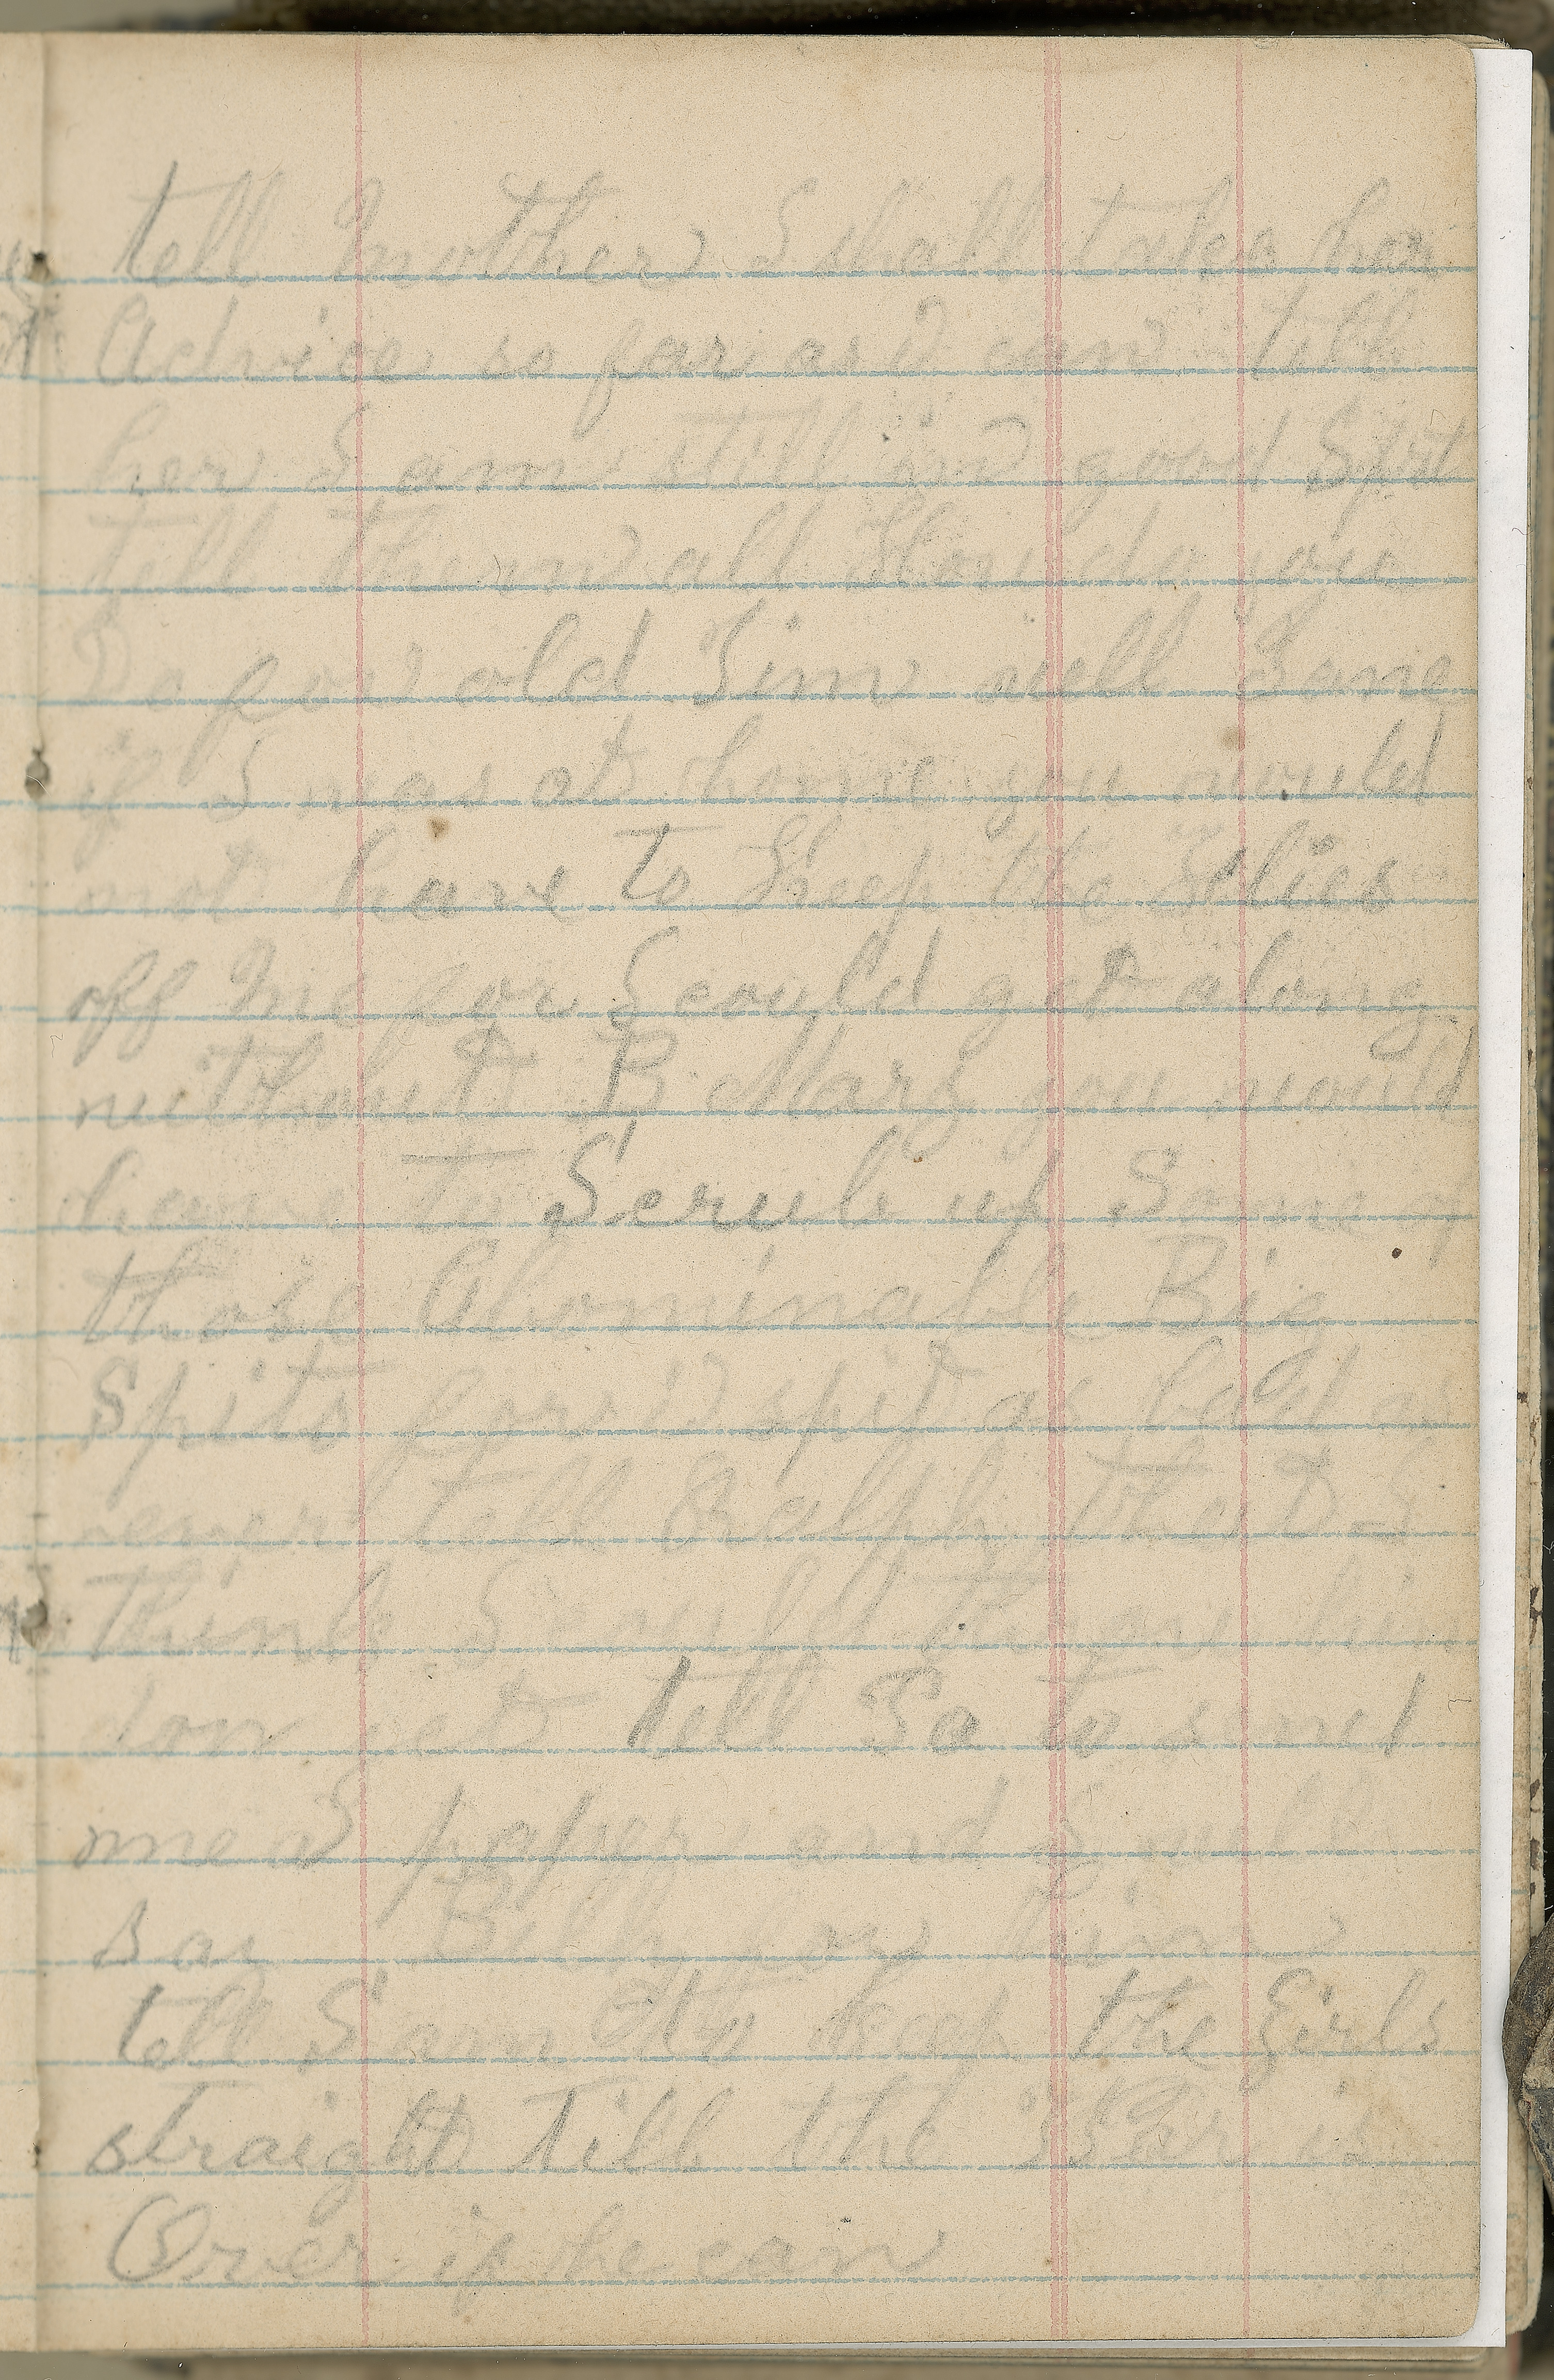 tell Mother I shall take her
Advice so far as I can tell
her I am still in good Spt
tell them all How do you
Do for old Jim well Jane
if I was at home you would
not have to Keep the Flies
off Me for I could get along
without B Mary you would
have to Scrub up Some of
those Abominable Big
Spits for I spit as bad as
ever tell Ralph that I
think I could throw him
down yet tell Jo to send
me A paper and I will
say Bully for him
tell Sam to keep the Girls
straight till the War is
Over if he can